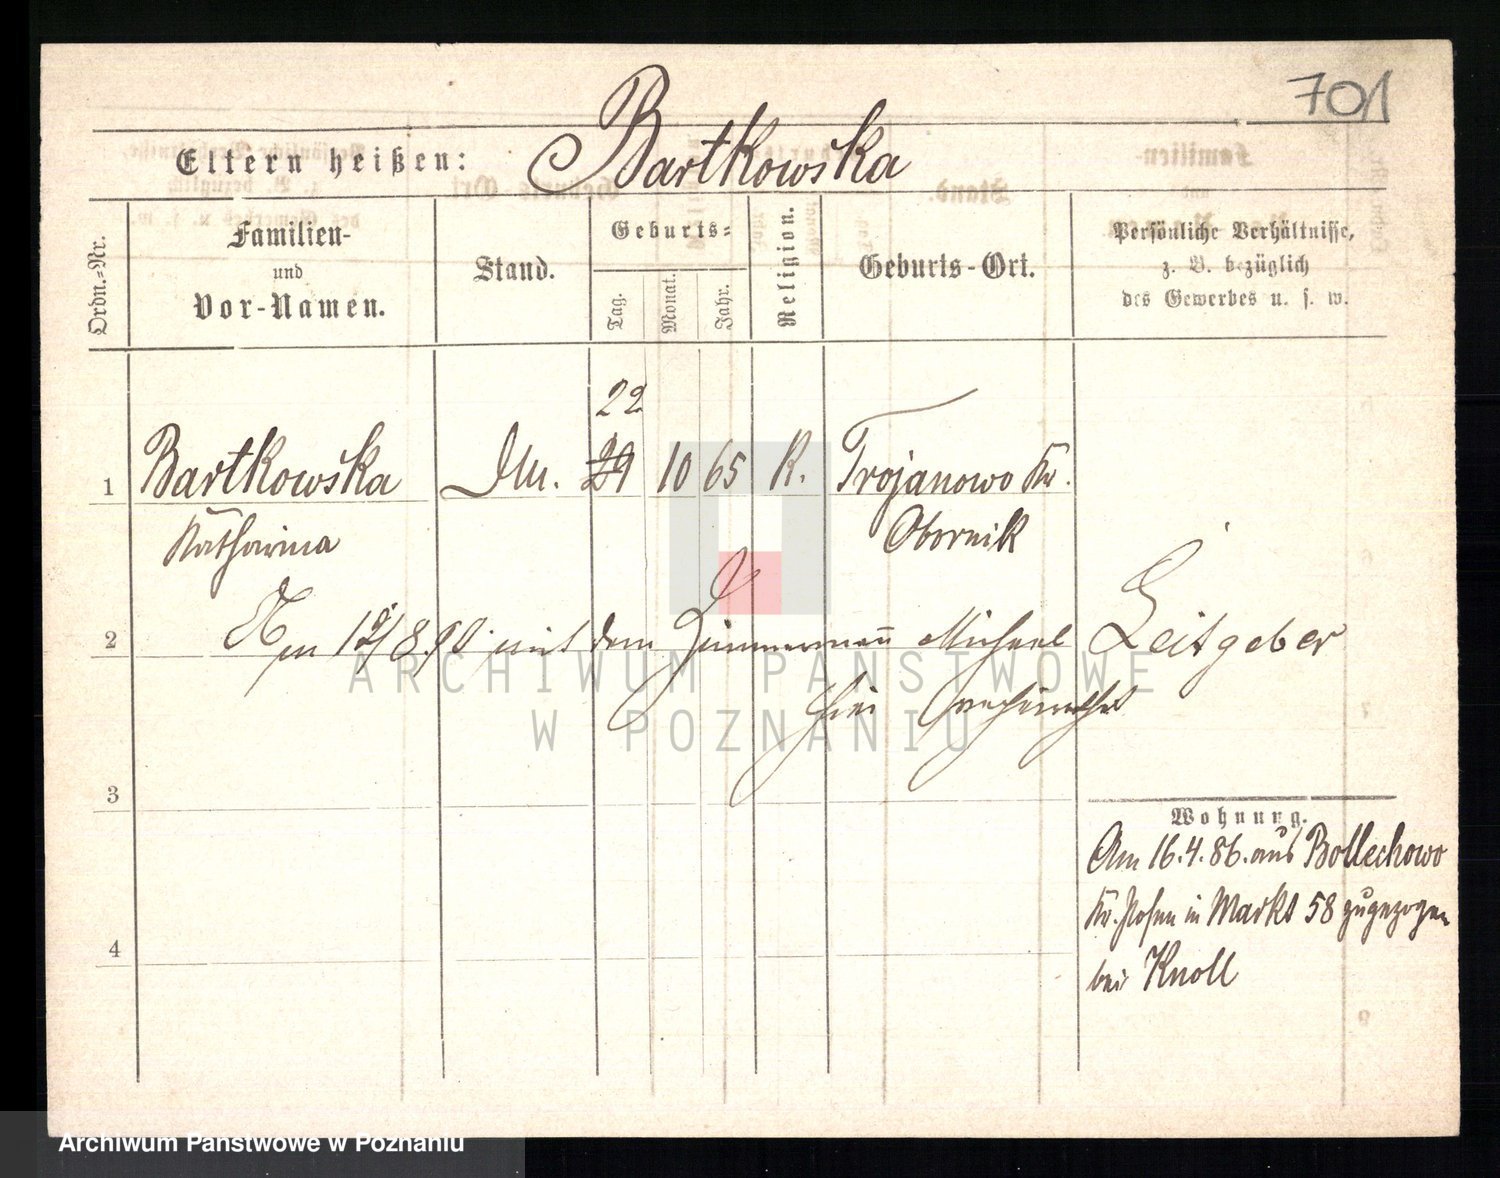 701
Eltern heißen: Bartkowska
Ordn.-Nr.
Familien-
und
Vor-Namen.
Stand.
Geburts-
Tag.
Monat.
Jahr.
Religion.
Geburts-Ort.
Persönliche Verhältnisse,
z. B. bezüglich
des Gewerbes u. s. w.
22
1 Bartkowska 29 10 65 K. Trojanowo Kr.
Katharina Obornik
2 Am 8.90 mit dem Zimmermann Michael Leitgeber
hier verheirathet
3
Wohnung.
Am 16.4.86. aus Bollechowo
Kr. Posen in Markt 58 zugezogen
4
bei Knoll
ARCHIWUM PAŃSTWOWE
W POZNANIU
Archiwum Państwowe w Poznaniu